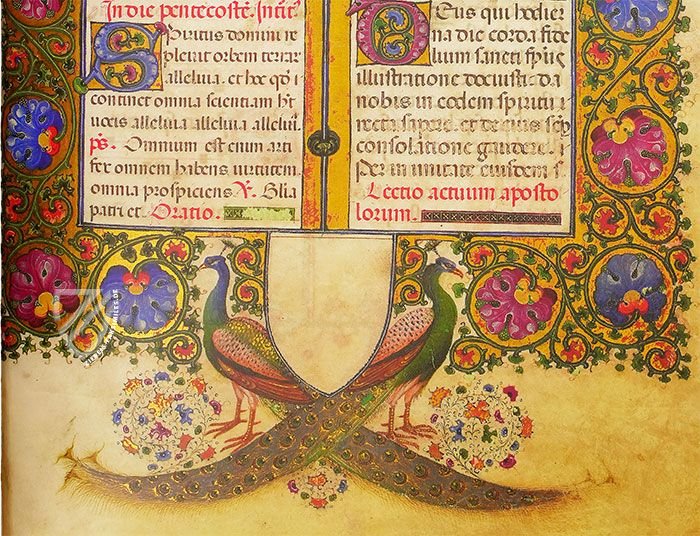 In die pentecostes. Intr.
Spiritus domini re
plevit orbem terrar
alleluia. et hoc qd
continet omnia scientiam ht
vocis alleluia alleluia allelui.
ps. Omnium est enim arti
fex omnem habens virtutem
omnia prospiciens V. Glia
patri et. Oratio.
Deus qui hodier
na die corda fide
lium sancti spus
illustratione docuisti. da
nobis in eodem spiritu
recta sapere. et de eius sep
consolatione gaudere.
Per in unitate eiusdem s.
Lectio actuum aposto
lorum.